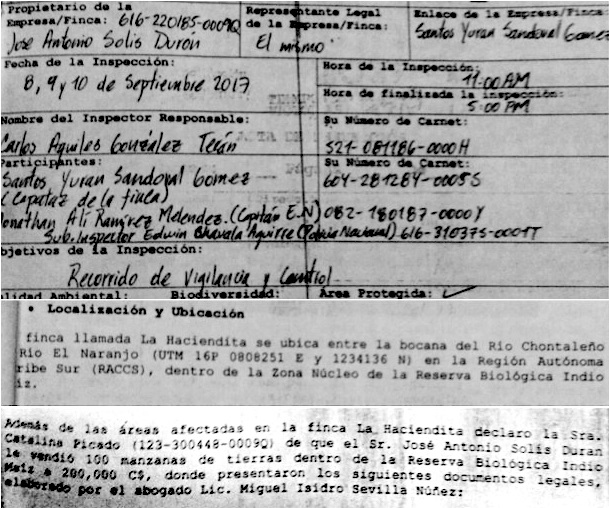 Propietario de la Representante Legal Enlace de la Empresa/Finca:
Empresa/Finca: 616-220185-0009Q de la Empresa/Finca: Santos Yuran Sandoval Gomez
Jose Antonio Solis Durón El mismo
Fecha de la Inspección: Hora de la Inspección:
8, 9 y 10 de Septiembre 2017 11:00 AM
Hora de finalizada la inspección:
5:00 PM
Nombre del Inspector Responsable: Su Número de Carnet:
Carlos Aquiles González Terán 521-081186-0000H
Participantes: Su Número de Carnet:
Santos Yuran Sandoval Gomez 604-281284-0005S
(Capataz de la finca)
onathan Alí Ramírez Melendez. (Capitán E.N) 082-180187-0000Y
Sub. Inspector Edwin Aguirre (Policía Nacional) 616-310375-0001T
bjetivos de la Inspección:
Recorrido de Vigilancia y Control
alidad Ambiental: Biodiversidad: Área Protegida: ✓
• Localización y Ubicación
finca llamada La Haciendita se ubica entre la bocana del Río Chontaleño
Río El Naranjo (UTM 16P 0808251 E y 1234136 N) en la Región Autónoma
ribe Sur (RACCS), dentro de la Zona Núcleo de la Reserva Biológica Indio
iz.
Además de las áreas afectadas en la finca La Haciendita declaro la Sra.
Catalina Picado (123-300448-0009Q) de que el Sr. José Antonio Solís Duran
le vendió 100 manzanas de tierras dentro de la Reserva Biológica Indio
Maíz a 200,000 C$, donde presentaron los siguientes documentos legales,
elaborado por el abogado Lic. Miguel Isidro Sevilla Núñez: